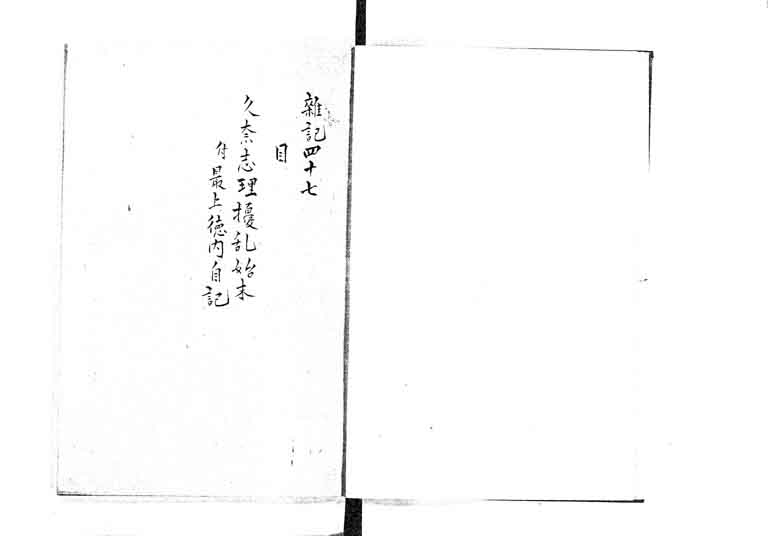 雜記四十七
目
久奈志理擾乱始末
付最上徳内自記